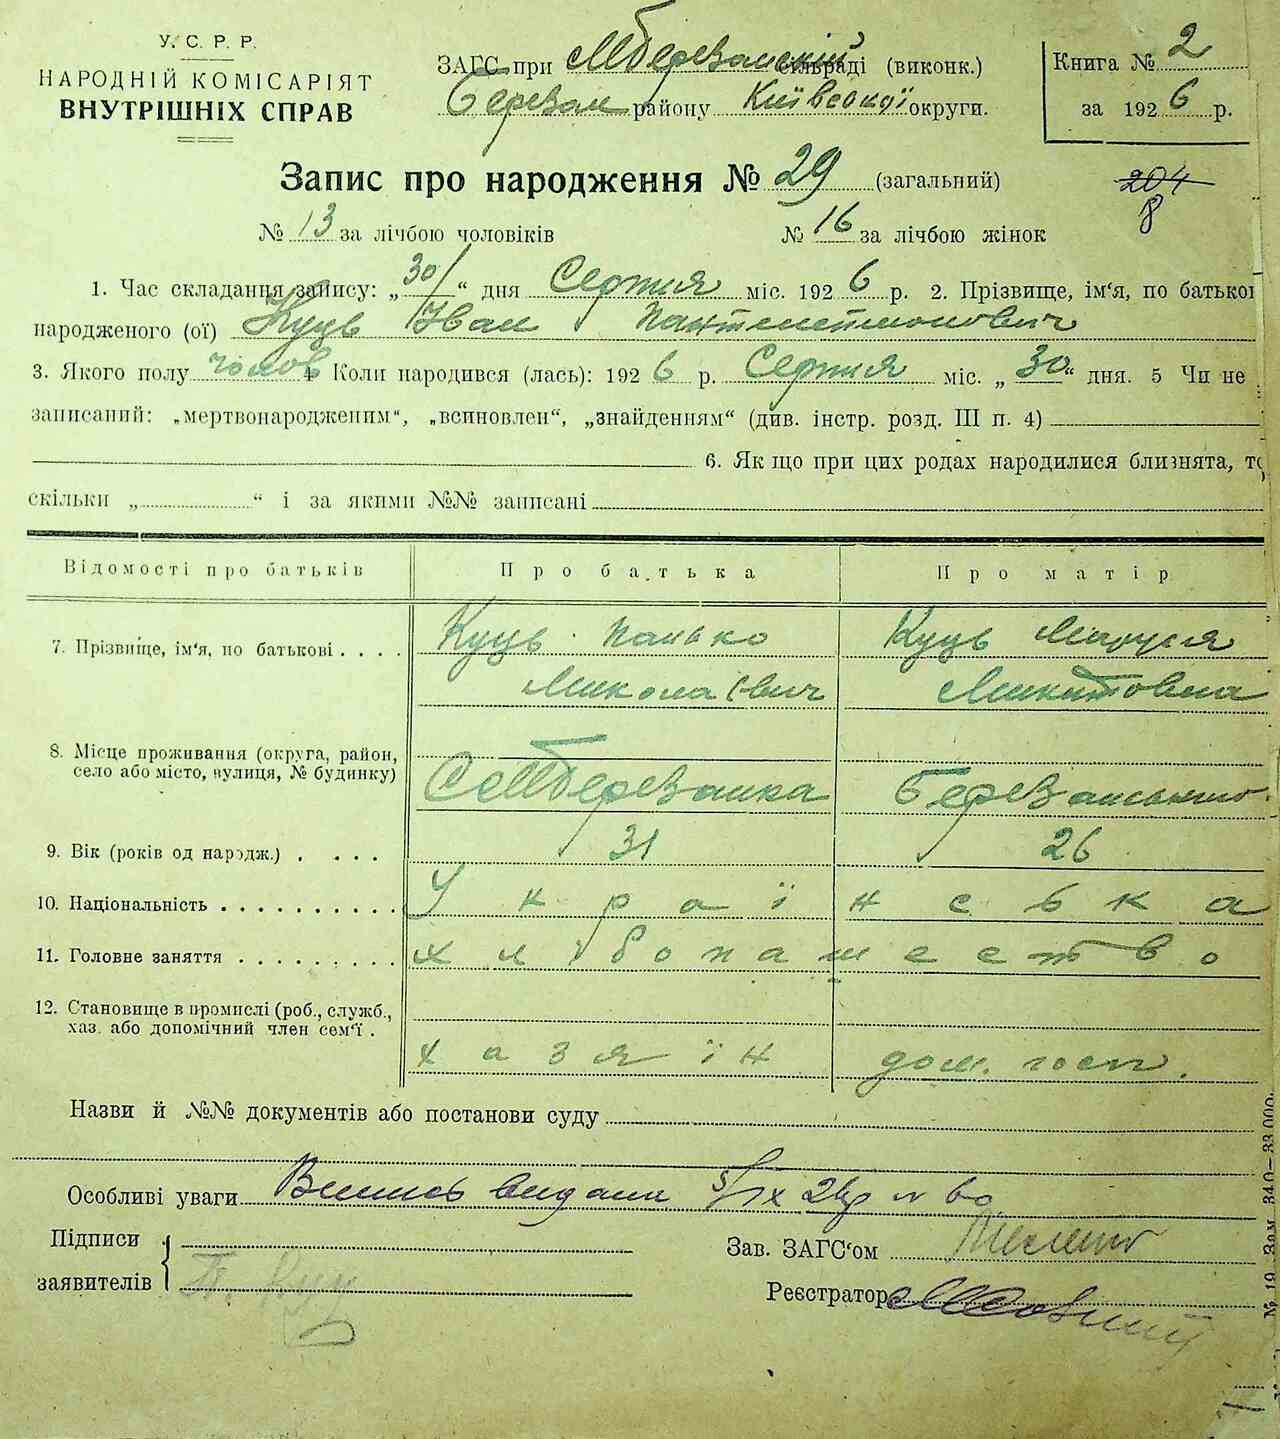 У. С. Р. Р.
НАРОДНІЙ КОМІСАРІЯТ
ВНУТРІШНІХ СПРАВ
ЗАГС при МБерезанській сільраді (виконк.)
Березан району Київської округи.
Книга № 2
за 1926 р.
Запис про народження № 29 (загальний)
204
8
№ 13 за лічбою чоловіків № 16 за лічбою жінок
1. Час складання запису: „30“ дня Серпня міс. 1926 р. 2. Прізвище, ім'я, по батькові
народженого (ої) Куць Іван Пантелетмонович
3. Якого полу чолов 4 Коли народився (лась): 1926 р. Серпня міс. „30“ дня. 5 Чи не
записаний: „мертвонародженим“, „всиновлен“, „знайденням“ (див. інстр. розд. III п. 4)
6. Як що при цих родах народилися близнята, то
скільки „ “ і за якими №№ записані
Відомості про батьків Про батька Про матір
7. Прізвище, ім'я, по батькові . . . . Куць Панько Куць Маруся
Миколаєвич Микитовна
8. Місце проживання (округа, район,
село або місто, вулиця, № будинку) С МБерезанка Березанського
9. Вік (років од нарэдж.) . . . . 31 26
10. Національність . . . . . . . . . . Українська
11. Головне заняття . . . . . . . . . хлібопашество
12. Становище в промислі (роб., служб.,
хаз. або допомічний член сем'ї . хазяїн дом. госп.
Назви й №№ документів або постанови суду
Особливі уваги Випись видана 5/IX 26р № 60
Підписи
заявителів П. Куц
Зав. ЗАГС'ом
Реєстратор
№ 19 Зам. 340—33.000.